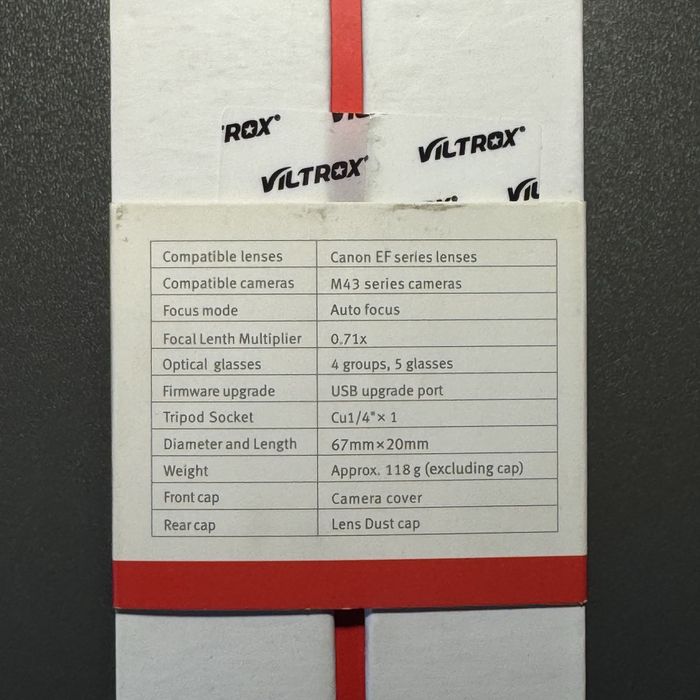 VILTROX®
VILTROX®
Compatible lenses Canon EF series lenses
Compatible cameras M43 series cameras
Focus mode Auto focus
Focal Lenth Multiplier 0.71x
Optical glasses 4 groups, 5 glasses
Firmware upgrade USB upgrade port
Tripod Socket Cu1/4"× 1
Diameter and Length 67mm×20mm
Weight Approx. 118 g (excluding cap)
Front cap Camera cover
Rear cap Lens Dust cap